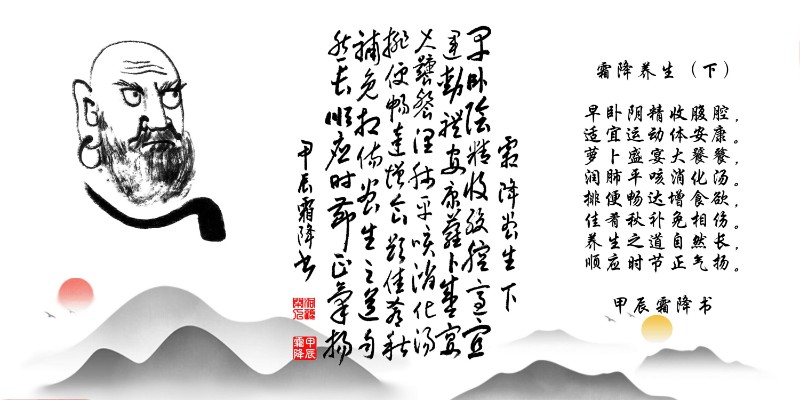 霜降养生下
早卧陰精收腹腔適宜
運動體安康蘿卜盛宴
大饕餮潤肺平咳消化汤
排便畅達增食欲佳肴秋
補免相伤养生之道自
然长顺应时节正氣扬
甲辰霜降书
甲辰
霜降
霜降养生（下）
早卧阴精收腹腔，
适宜运动体安康。
萝卜盛宴大饕餮，
润肺平咳消化汤。
排便畅达增食欲，
佳肴秋补免相伤。
养生之道自然长，
顺应时节正气扬。
甲辰霜降书